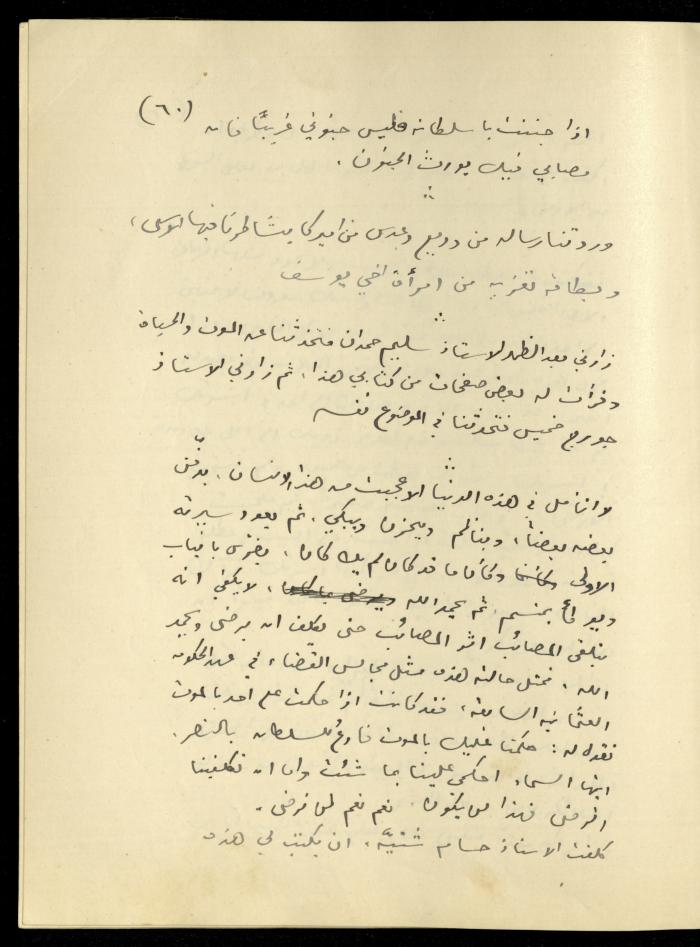 (٦٠)
اذا جننت يا سلطانة فليس جنوني غريبًا فان
مصابي فيك يورث الجنون .
وردتنا رسالة من وديع وعدس من اميركا يشاطرنا فيها الاسى،
وبطاقة تعزية من امرأة اخي يوسف
زارني بعد الظهر الاستاذ سليم حمدان فتحدثنا عن الموت والحياة
وقرأت له بعض صفحات من كتابي هذا، ثم زارني الاستاذ
جورج خميس فتحدثنا في الموضوع نفسه
لا اتأمل في هذه الدنيا الا عجبت من هذا الانسان . يدفن
بعضه بعضاً، ويتألم ويحزن ويبكي، ثم يعود سيرته
الاولى وكأن ما قد كان لم يك كان، يفترس بأنياب
ويد بمنسم، ثم يحمد الله ، لا يكفي انه
يتلقى المصائب اثر المصائب حتى يكلف ان يرضى ويحمد
الله . فمثل حالته هذه مثل مجالس القضاء في عهد الحكومة
العثمانية السابقة، فقد كانت اذا حكمت على احد بالموت
تقول له : حكمنا عليك بالموت فادع للسلطان بالنصر .
ايتها السماء احكمي علينا بما شئت واما ان تكلفينا
ان نرضى فهذا لن يكون . نعم نعم لن نرضى .
كلفت الاستاذ حسام ان يكتب لي هذه